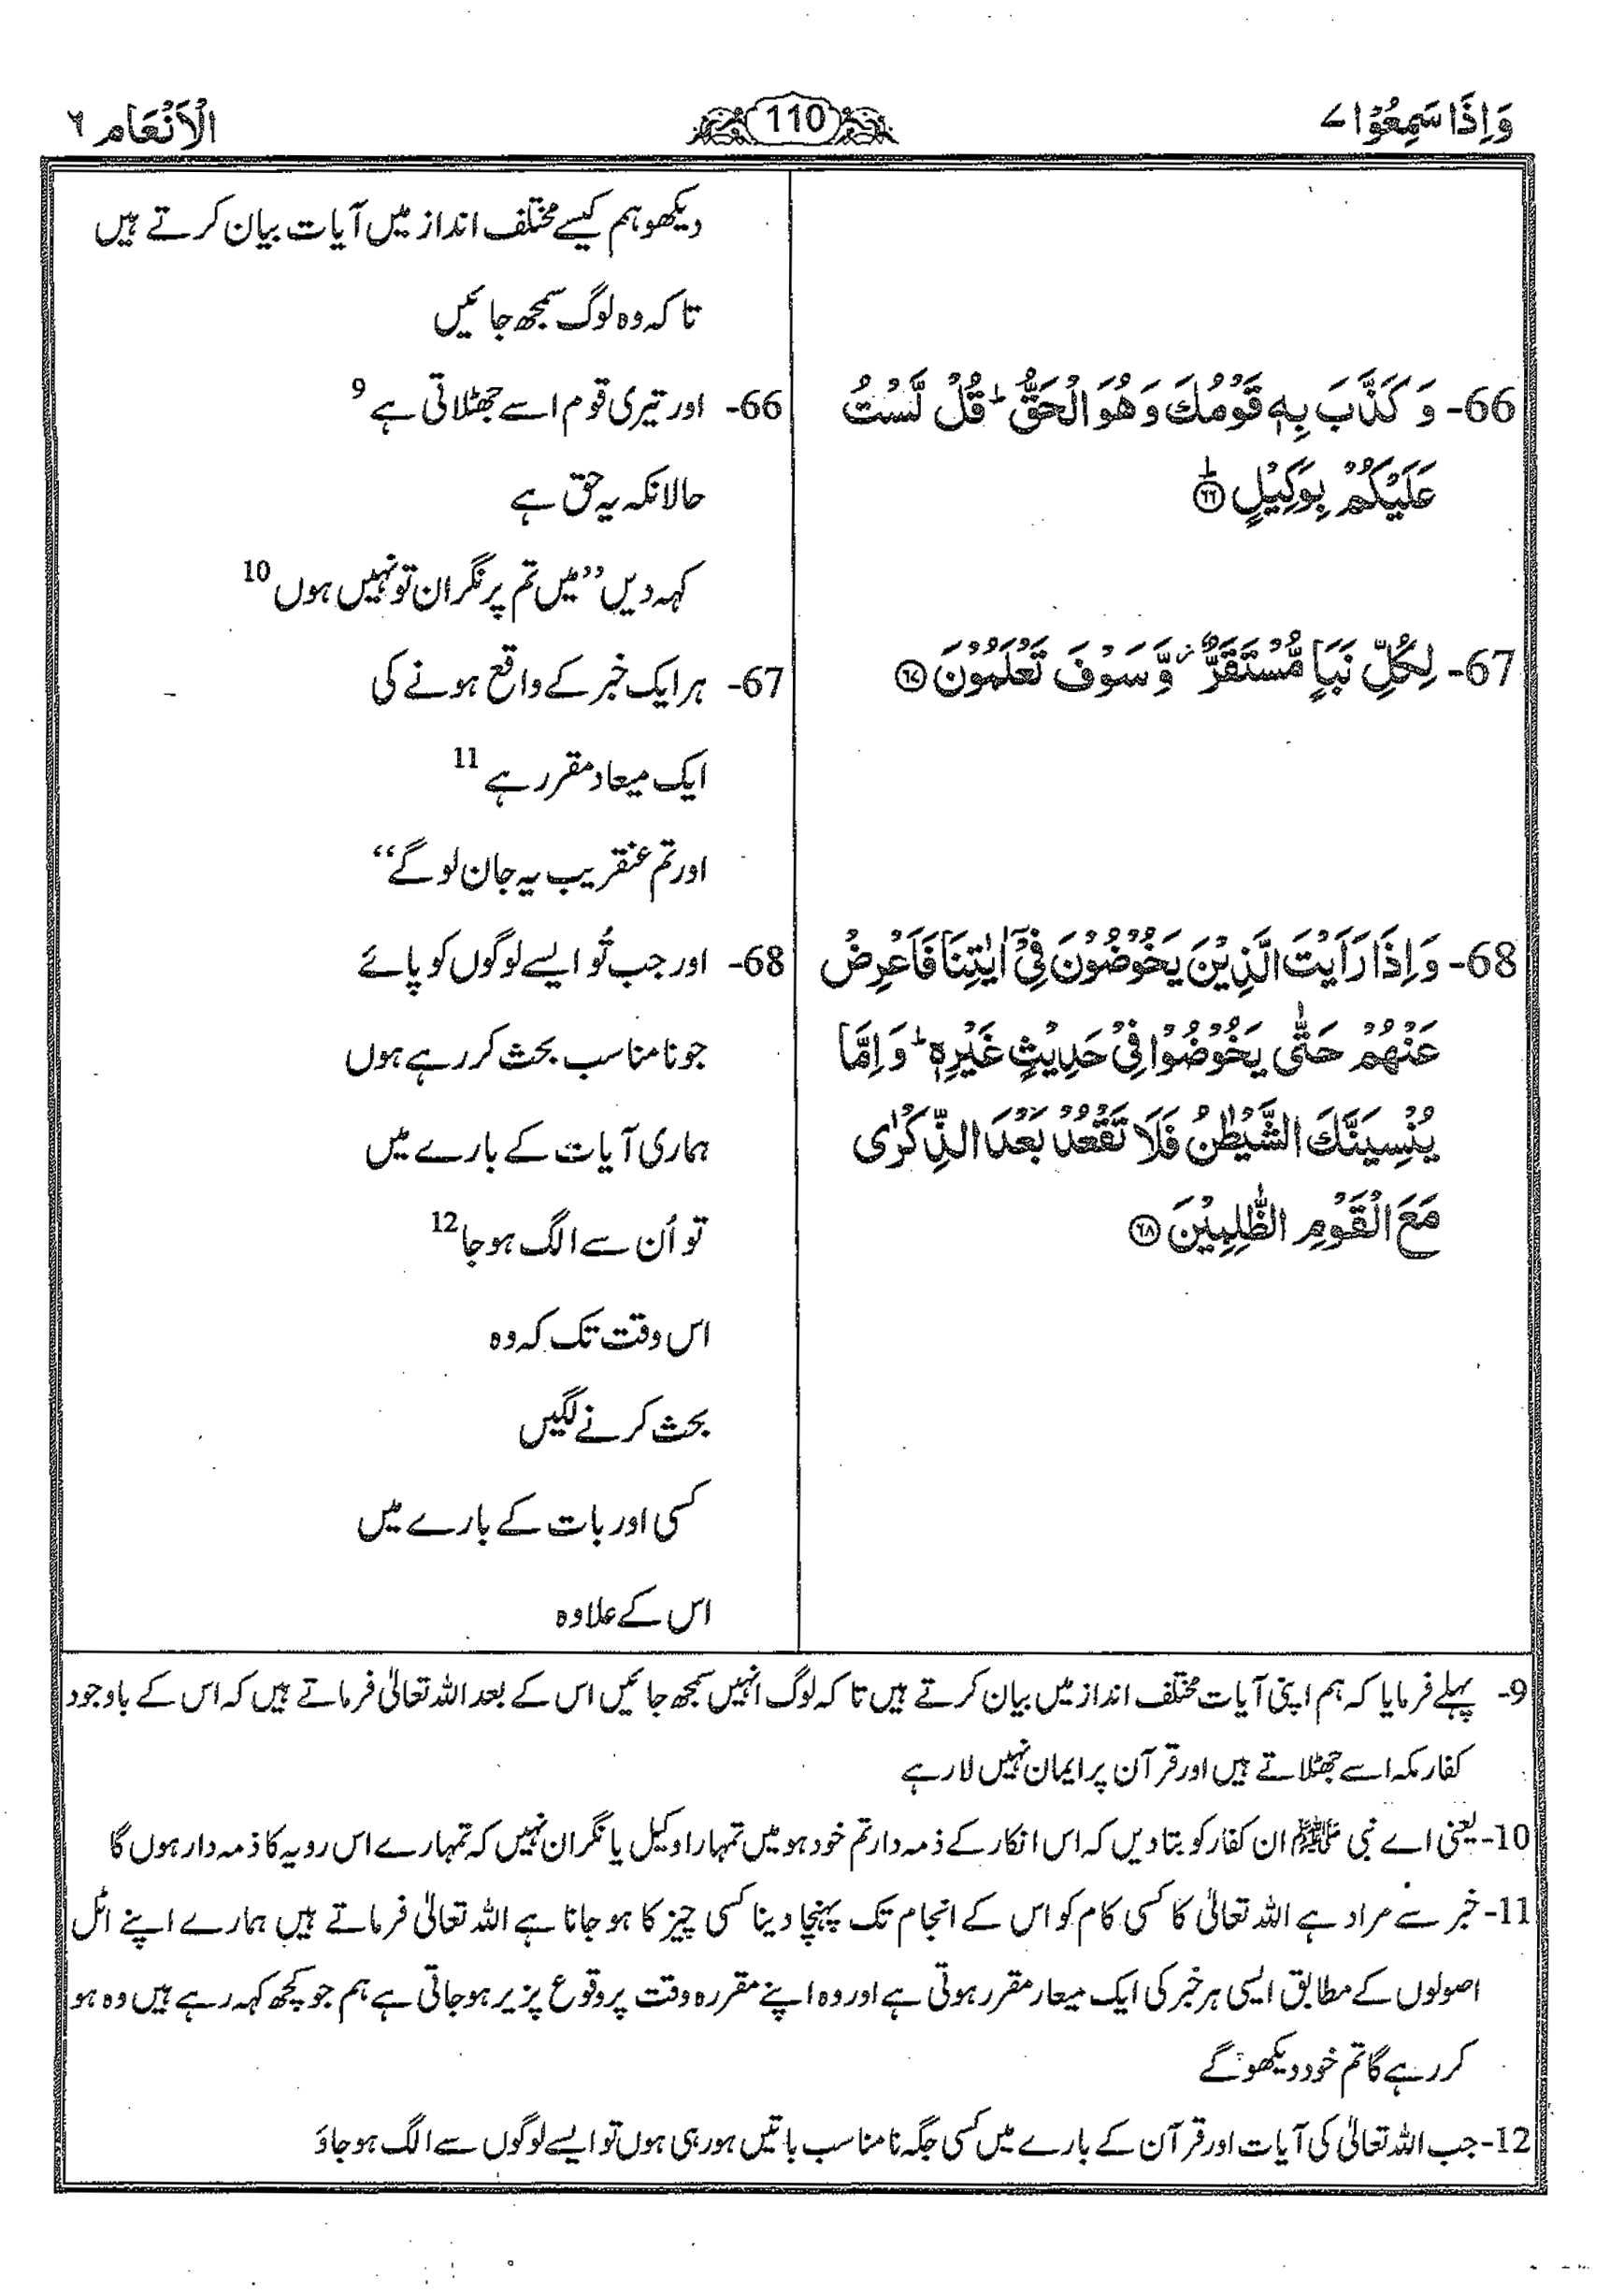 وَاِذَا سَمِعُوْا ۷
110
الْاَنْعَام ٦
66- وَ كَذَّبَ بِهٖ قَوْمُكَ وَهُوَ الْحَقُّ ؕ قُلْ لَّسْتُ
عَلَيْكُمْ بِوَكِيْلٍ ؕ ﴿٦٦﴾
67- لِكُلِّ نَبَاٍ مُّسْتَقَرٌّ ۫ وَّ سَوْفَ تَعْلَمُوْنَ ﴿٦٧﴾
68- وَ اِذَا رَاَيْتَ الَّذِيْنَ يَخُوْضُوْنَ فِيْۤ اٰيٰتِنَا فَاَعْرِضْ
عَنْهُمْ حَتّٰى يَخُوْضُوْا فِيْ حَدِيْثٍ غَيْرِهٖ ؕ وَ اِمَّا
يُنْسِيَنَّكَ الشَّيْطٰنُ فَلَا تَقْعُدْ بَعْدَ الذِّكْرٰى
مَعَ الْقَوْمِ الظّٰلِمِيْنَ ﴿٦٨﴾
دیکھو ہم کیسے مختلف انداز میں آیات بیان کرتے ہیں
تا کہ وہ لوگ سمجھ جائیں
66- اور تیری قوم اسے جھٹلاتی ہے 9
حالانکہ یہ حق ہے
کہہ دیں ’’میں تم پر نگران تو نہیں ہوں 10
67- ہر ایک خبر کے واقع ہونے کی
ایک میعاد مقرر ہے 11
اور تم عنقریب یہ جان لو گے‘‘
68- اور جب تُو ایسے لوگوں کو پائے
جو نامناسب بحث کر رہے ہوں
ہماری آیات کے بارے میں
تو اُن سے الگ ہو جا 12
اس وقت تک کہ وہ
بحث کرنے لگیں
کسی اور بات کے بارے میں
اس کے علاوہ
9- پہلے فرمایا کہ ہم اپنی آیات مختلف انداز میں بیان کرتے ہیں تا کہ لوگ انہیں سمجھ جائیں اس کے بعد اللہ تعالیٰ فرماتے ہیں کہ اس کے باوجود
کفار مکہ اسے جھٹلاتے ہیں اور قرآن پر ایمان نہیں لا رہے
10- یعنی اے نبی ﷺ ان کفار کو بتا دیں کہ اس انکار کے ذمہ دار تم خود ہو میں تمہارا وکیل یا نگران نہیں کہ تمہارے اس رویہ کا ذمہ دار ہوں گا
11- خبر سے مراد ہے اللہ تعالیٰ کا کسی کام کو اس کے انجام تک پہنچا دینا کسی چیز کا ہو جانا ہے اللہ تعالیٰ فرماتے ہیں ہمارے اپنے اٹل
اصولوں کے مطابق ایسی ہر خبر کی ایک میعار مقرر ہوتی ہے اور وہ اپنے مقررہ وقت پر وقوع پزیر ہو جاتی ہے ہم جو کچھ کہہ رہے ہیں وہ ہو
کر رہے گا تم خود دیکھو گے
12- جب اللہ تعالیٰ کی آیات اور قرآن کے بارے میں کسی جگہ نامناسب باتیں ہو رہی ہوں تو ایسے لوگوں سے الگ ہو جاؤ